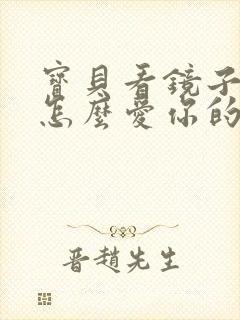 寶貝看鏡子
怎麼愛你的
晋趙先生